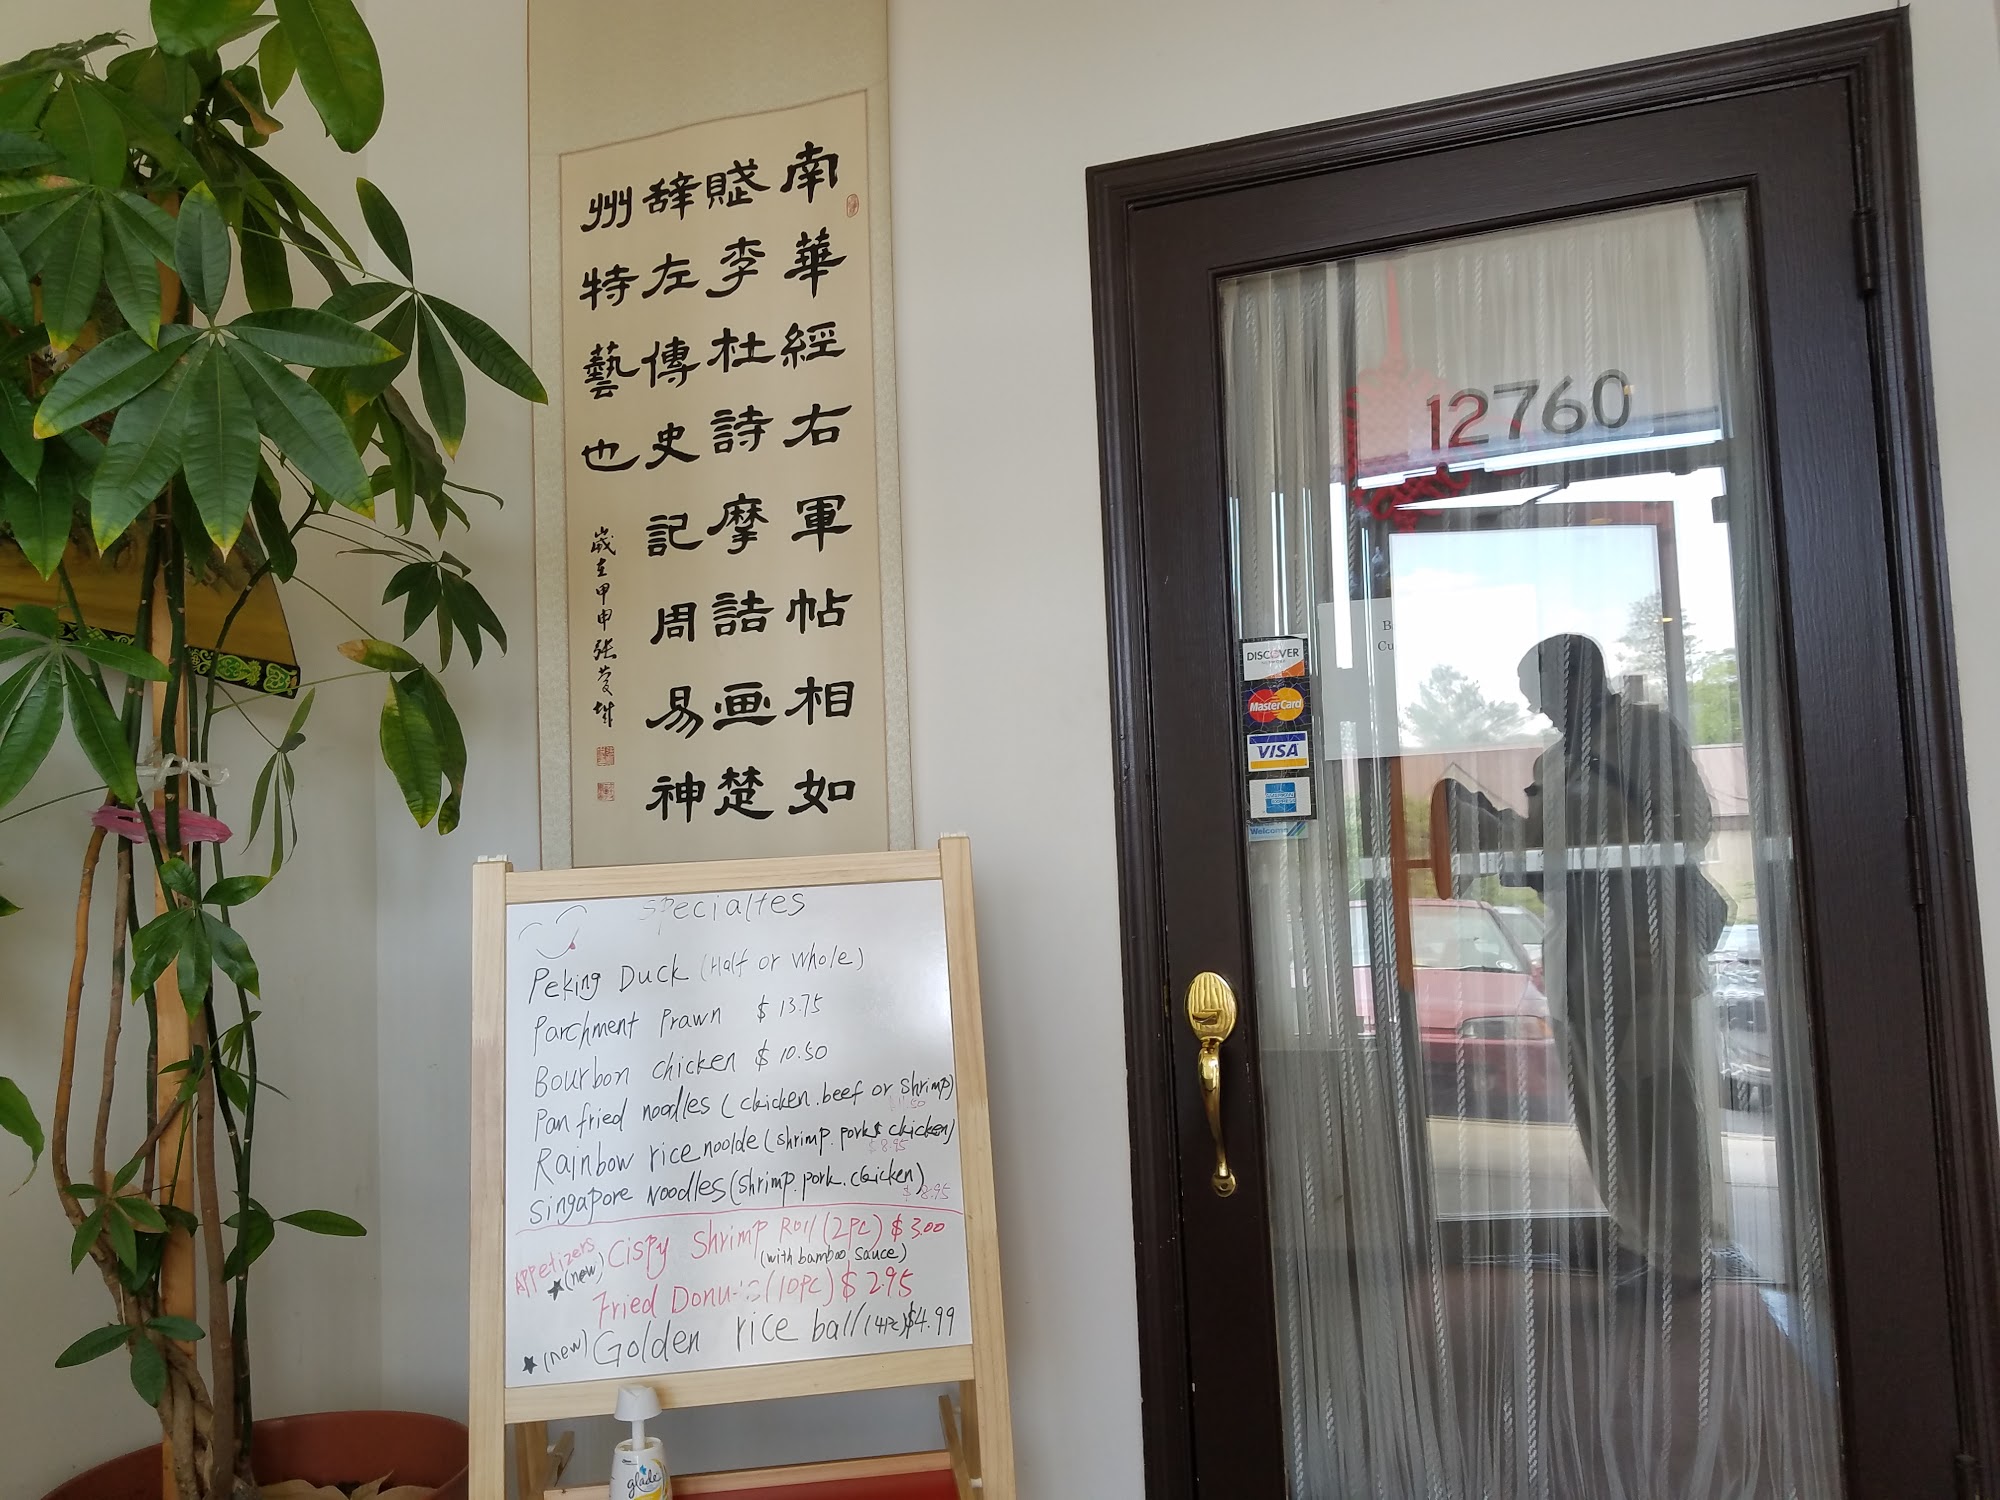 南華經右軍帖相如
賦李杜詩摩詰画楚
辞左傳史記周易神
州特藝也
歲在甲申张
12760
DISCOVER
NETWORK
MasterCard
VISA
AMERICAN
EXPRESS
Welcome
B
Cu
specialtes
Peking Duck (Half or whole)
Parchment Prawn $ 13.75
Bourbon chicken $ 10.50
Pan fried noodles (chicken.beef or shrimp)
Rainbow rice noolde (shrimp.pork & chicken)
$8.95
Singapore Noodles (shrimp.pork.chicken)
$ 8.95
Appetizers
(new) Cispy Shrimp Roll (2pc) $ 3.00
(with bamboo sauce)
Fried Donuts (10pc) $ 2.95
(new) Golden rice ball (4pc) $4.99
glade